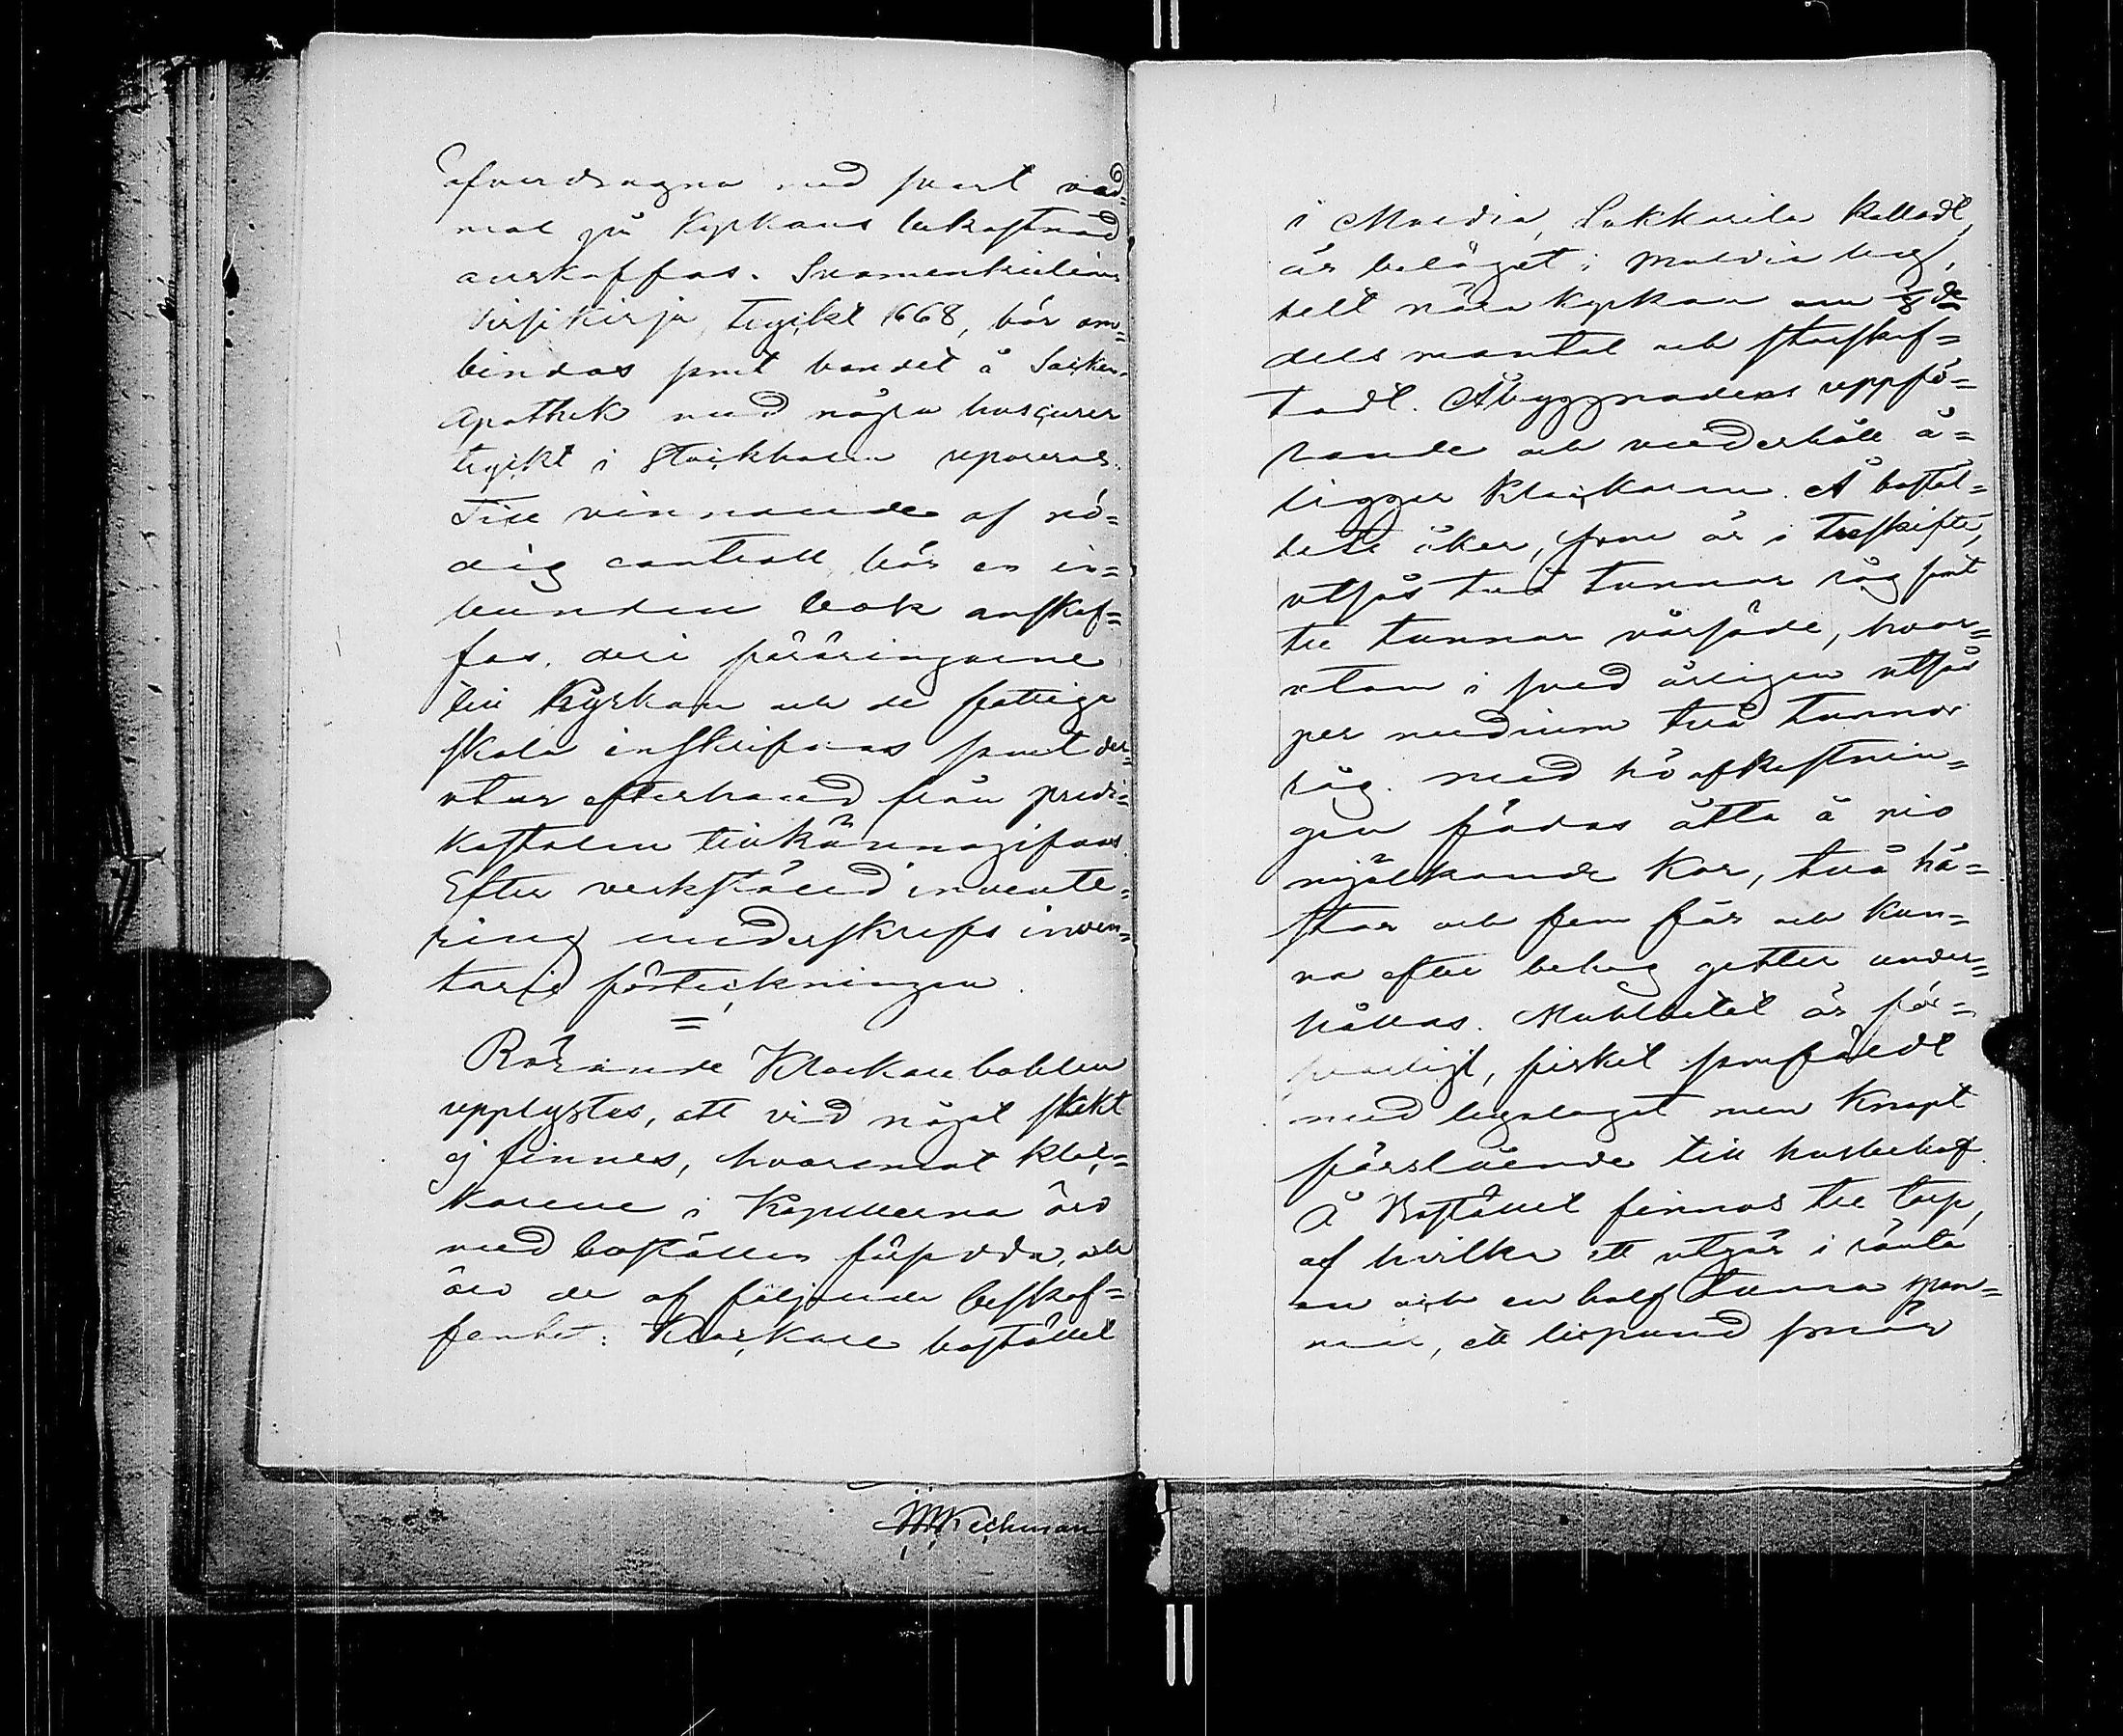 öfverdragna med svart vad=
mal på Kyrkans bekostnad
anskaffas. Suomenkielinen
Virsikirja, tryckt 1668, bör om=
bindas samt bandet å Socken
Apothek med några huscurer
tryckt i Stockholm repareras.
Till vinnande af nö=
dig controll bör en in=
bunden bok anskaf=
fas, deri föräringarne
till Kyrkan och de fattige
skola inskrifvas samt der=
utur efterhand från predi=
kostolen tillkännagifvas.
Efter verkställd invente=
ring underskrefs inven=
tarie förteckningen.
=
Rörande Klockarebohlen
upplystes, att vid något sådant
ej finnes, hvaremot kloc=
karene i Kapellerna äro
med boställen försedda, och
äro de af följande beskaf=
fenhet: Klockare bostället
Pechman
i Muldia, Lukkarila kalladt,
är beläget i Muldia by,
tätt nära Kyrkan om 1/8 de
dels mantal och storskif=
tadt. Åbyggnadens uppfö=
rande och underhåll å=
ligger Klockaren. Å bostäl=
lets åker, som är i treskifte,
utsås två tunnor råg samt
tre tunnor vårsäde, hvar=
utom i sved årligen utsås
per medium två tunnor
råg. Med höafkastnin=
gen födas åtta à nio
mjölkande kor, två hä=
star och fem får och kun=
na efter behag getter under=
hållas. Muhlbetet är för=
svarligt, fisket samfäldt
med byalaget men knapt
förslående till husbehof.
Å Bostället finnas tre torp,
af hvilka ett utgör i ränta
en och en half tunna span=
mål, ett lispund smör